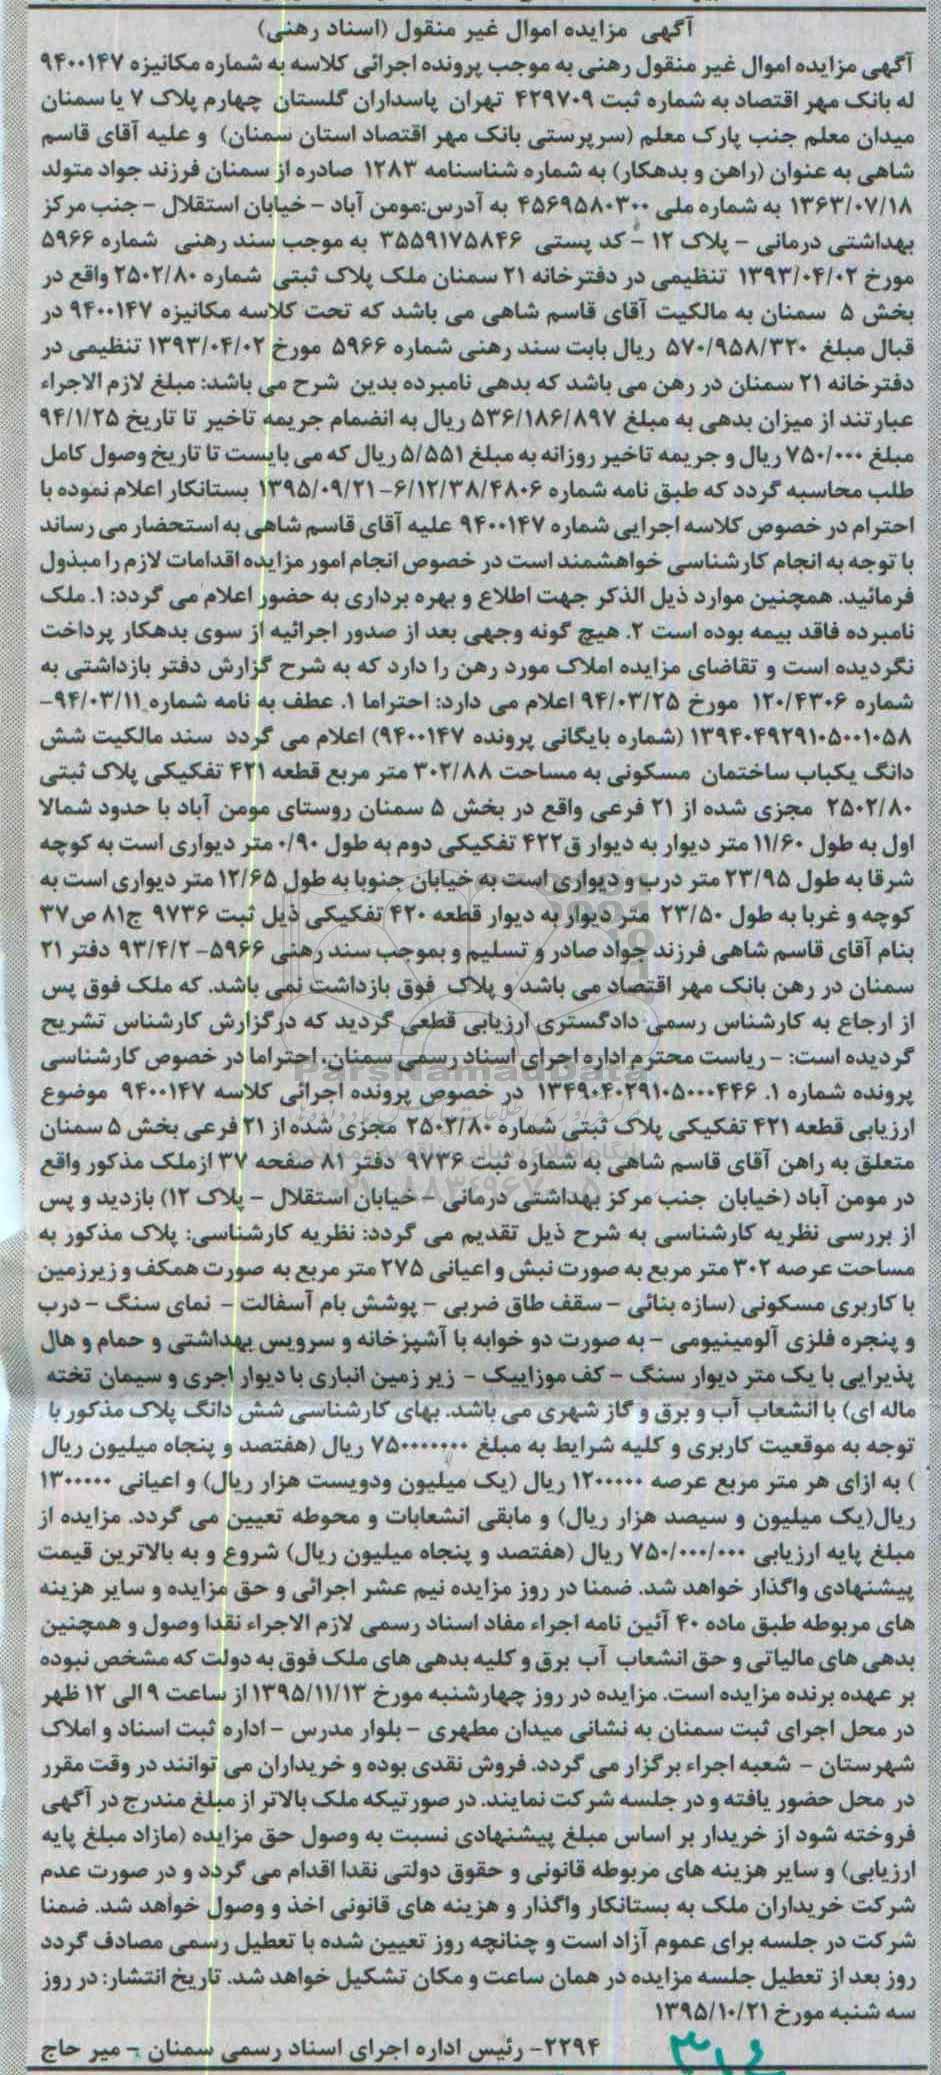 آگهی مزایده اموال غیر منقول (اسناد رهنی)
آگهی مزایده اموال غیر منقول رهنی به موجب پرونده اجرائی کلاسه به شماره مکانیزه ۹۴۰۰۱۴۷
له بانک مهر اقتصاد به شماره ثبت ۴۲۹۷۰۹ تهران پاسداران گلستان چهارم پلاک ۷ یا سمنان
میدان معلم جنب پارک معلم (سرپرستی بانک مهر اقتصاد استان سمنان) و علیه آقای قاسم
شاهی به عنوان (راهن و بدهکار) به شماره شناسنامه ۱۲۸۳ صادره از سمنان فرزند جواد متولد
۱۳۶۳/۰۷/۱۸ به شماره ملی ۴۵۶۹۵۸۰۳۰۰ به آدرس:مومن آباد - خیابان استقلال - جنب مرکز
بهداشتی درمانی - پلاک ۱۲ - کد پستی ۳۵۵۹۱۷۵۸۴۶ به موجب سند رهنی شماره ۵۹۶۶
مورخ ۱۳۹۳/۰۴/۰۲ تنظیمی در دفترخانه ۲۱ سمنان ملک پلاک ثبتی شماره ۲۵۰۲/۸۰ واقع در
بخش ۵ سمنان به مالکیت آقای قاسم شاهی می باشد که تحت کلاسه مکانیزه ۹۴۰۰۱۴۷ در
قبال مبلغ ۵۷۰/۹۵۸/۳۲۰ ریال بابت سند رهنی شماره ۵۹۶۶ مورخ ۱۳۹۳/۰۴/۰۲ تنظیمی در
دفترخانه ۲۱ سمنان در رهن می باشد که بدهی نامبرده بدین شرح می باشد: مبلغ لازم الاجراء
عبارتند از میزان بدهی به مبلغ ۵۳۶/۱۸۶/۸۹۷ ریال به انضمام جریمه تاخیر تا تاریخ ۹۴/۱/۲۵
مبلغ ۷۵۰/۰۰۰ ریال و جریمه تاخیر روزانه به مبلغ ۵/۵۵۱ ریال که می بایست تا تاریخ وصول کامل
طلب محاسبه گردد که طبق نامه شماره ۶/۱۲/۳۸/۴۸۰۶-۱۳۹۵/۰۹/۲۱ بستانکار اعلام نموده با
احترام در خصوص کلاسه اجرایی شماره ۹۴۰۰۱۴۷ علیه آقای قاسم شاهی به استحضار می رساند
با توجه به انجام کارشناسی خواهشمند است در خصوص انجام امور مزایده اقدامات لازم را مبذول
فرمائید. همچنین موارد ذیل الذکر جهت اطلاع و بهره برداری به حضور اعلام می گردد: ۱. ملک
نامبرده فاقد بیمه بوده است ۲. هیچ گونه وجهی بعد از صدور اجرائیه از سوی بدهکار پرداخت
نگردیده است و تقاضای مزایده املاک مورد رهن را دارد که به شرح گزارش دفتر بازداشتی به
شماره ۱۲۰/۴۳۰۶ مورخ ۹۴/۰۳/۲۵ اعلام می دارد: احتراما ۱. عطف به نامه شماره ۹۴/۰۳/۱۱-
۱۳۹۴۰۴۹۲۹۱۰۵۰۰۱۰۵۸ (شماره بایگانی پرونده ۹۴۰۰۱۴۷) اعلام می گردد سند مالکیت شش
دانگ یکباب ساختمان مسکونی به مساحت ۳۰۲/۸۸ متر مربع قطعه ۴۲۱ تفکیکی پلاک ثبتی
۲۵۰۲/۸۰ مجزی شده از ۲۱ فرعی واقع در بخش ۵ سمنان روستای مومن آباد با حدود شمالا
اول به طول ۱۱/۶۰ متر دیوار به دیوار ق۴۲۲ تفکیکی دوم به طول ۰/۹۰ متر دیواری است به کوچه
شرقا به طول ۲۳/۹۵ متر درب و دیواری است به خیابان جنوبا به طول ۱۲/۶۵ متر دیواری است به
کوچه و غربا به طول ۲۳/۵۰ متر دیوار به دیوار قطعه ۴۲۰ تفکیکی ذیل ثبت ۹۷۳۶ ج۸۱ ص۳۷
بنام آقای قاسم شاهی فرزند جواد صادر و تسلیم و بموجب سند رهنی ۵۹۶۶-۹۳/۴/۲ دفتر ۲۱
سمنان در رهن بانک مهر اقتصاد می باشد و پلاک فوق بازداشت نمی باشد. که ملک فوق پس
از ارجاع به کارشناس رسمی دادگستری ارزیابی قطعی گردید که درگزارش کارشناس تشریح
گردیده است: - ریاست محترم اداره اجرای اسناد رسمی سمنان، احتراما در خصوص کارشناسی
پرونده شماره ۱. ۱۳۴۹۰۴۰۲۹۱۰۵۰۰۰۴۴۶ در خصوص پرونده اجرائی کلاسه ۹۴۰۰۱۴۷ موضوع
ارزیابی قطعه ۴۲۱ تفکیکی پلاک ثبتی شماره ۲۵۰۲/۸۰ مجزی شده از ۲۱ فرعی بخش ۵ سمنان
متعلق به راهن آقای قاسم شاهی به شماره ثبت ۹۷۳۶ دفتر ۸۱ صفحه ۳۷ ازملک مذکور واقع
در مومن آباد (خیابان جنب مرکز بهداشتی درمانی - خیابان استقلال - پلاک ۱۲) بازدید و پس
از بررسی نظریه کارشناسی به شرح ذیل تقدیم می گردد: نظریه کارشناسی: پلاک مذکور به
مساحت عرصه ۳۰۲ متر مربع به صورت نبش و اعیانی ۲۷۵ متر مربع به صورت همکف و زیرزمین
با کاربری مسکونی (سازه بنائی - سقف طاق ضربی - پوشش بام آسفالت - نمای سنگ - درب
و پنجره فلزی آلومینیومی - به صورت دو خوابه با آشپزخانه و سرویس بهداشتی و حمام و هال
پذیرایی با یک متر دیوار سنگ - کف موزاییک - زیر زمین انباری با دیوار اجری و سیمان تخته
ماله ای) با انشعاب آب و برق و گاز شهری می باشد. بهای کارشناسی شش دانگ پلاک مذکور با
توجه به موقعیت کاربری و کلیه شرایط به مبلغ ۷۵۰۰۰۰۰۰۰ ریال (هفتصد و پنجاه میلیون ریال
) به ازای هر متر مربع عرصه ۱۲۰۰۰۰۰ ریال (یک میلیون ودویست هزار ریال) و اعیانی ۱۳۰۰۰۰۰
ریال(یک میلیون و سیصد هزار ریال) و مابقی انشعابات و محوطه تعیین می گردد. مزایده از
مبلغ پایه ارزیابی ۷۵۰/۰۰۰/۰۰۰ ریال (هفتصد و پنجاه میلیون ریال) شروع و به بالاترین قیمت
پیشنهادی واگذار خواهد شد. ضمنا در روز مزایده نیم عشر اجرائی و حق مزایده و سایر هزینه
های مربوطه طبق ماده ۴۰ آئین نامه اجراء مفاد اسناد رسمی لازم الاجراء نقدا وصول و همچنین
بدهی های مالیاتی و حق انشعاب آب برق و کلیه بدهی های ملک فوق به دولت که مشخص نبوده
بر عهده برنده مزایده است. مزایده در روز چهارشنبه مورخ ۱۳۹۵/۱۱/۱۳ از ساعت ۹ الی ۱۲ ظهر
در محل اجرای ثبت سمنان به نشانی میدان مطهری - بلوار مدرس - اداره ثبت اسناد و املاک
شهرستان - شعبه اجراء برگزار می گردد. فروش نقدی بوده و خریداران می توانند در وقت مقرر
در محل حضور یافته و در جلسه شرکت نمایند. در صورتیکه ملک بالاتر از مبلغ مندرج در آگهی
فروخته شود از خریدار بر اساس مبلغ پیشنهادی نسبت به وصول حق مزایده (مازاد مبلغ پایه
ارزیابی) و سایر هزینه های مربوطه قانونی و حقوق دولتی نقدا اقدام می گردد و در صورت عدم
شرکت خریداران ملک به بستانکار واگذار و هزینه های قانونی اخذ و وصول خواهد شد. ضمنا
شرکت در جلسه برای عموم آزاد است و چنانچه روز تعیین شده با تعطیل رسمی مصادف گردد
روز بعد از تعطیل جلسه مزایده در همان ساعت و مکان تشکیل خواهد شد. تاریخ انتشار: در روز
سه شنبه مورخ ۱۳۹۵/۱۰/۲۱
۲۲۹۴- رئیس اداره اجرای اسناد رسمی سمنان - میر حاج
ParsNamadData